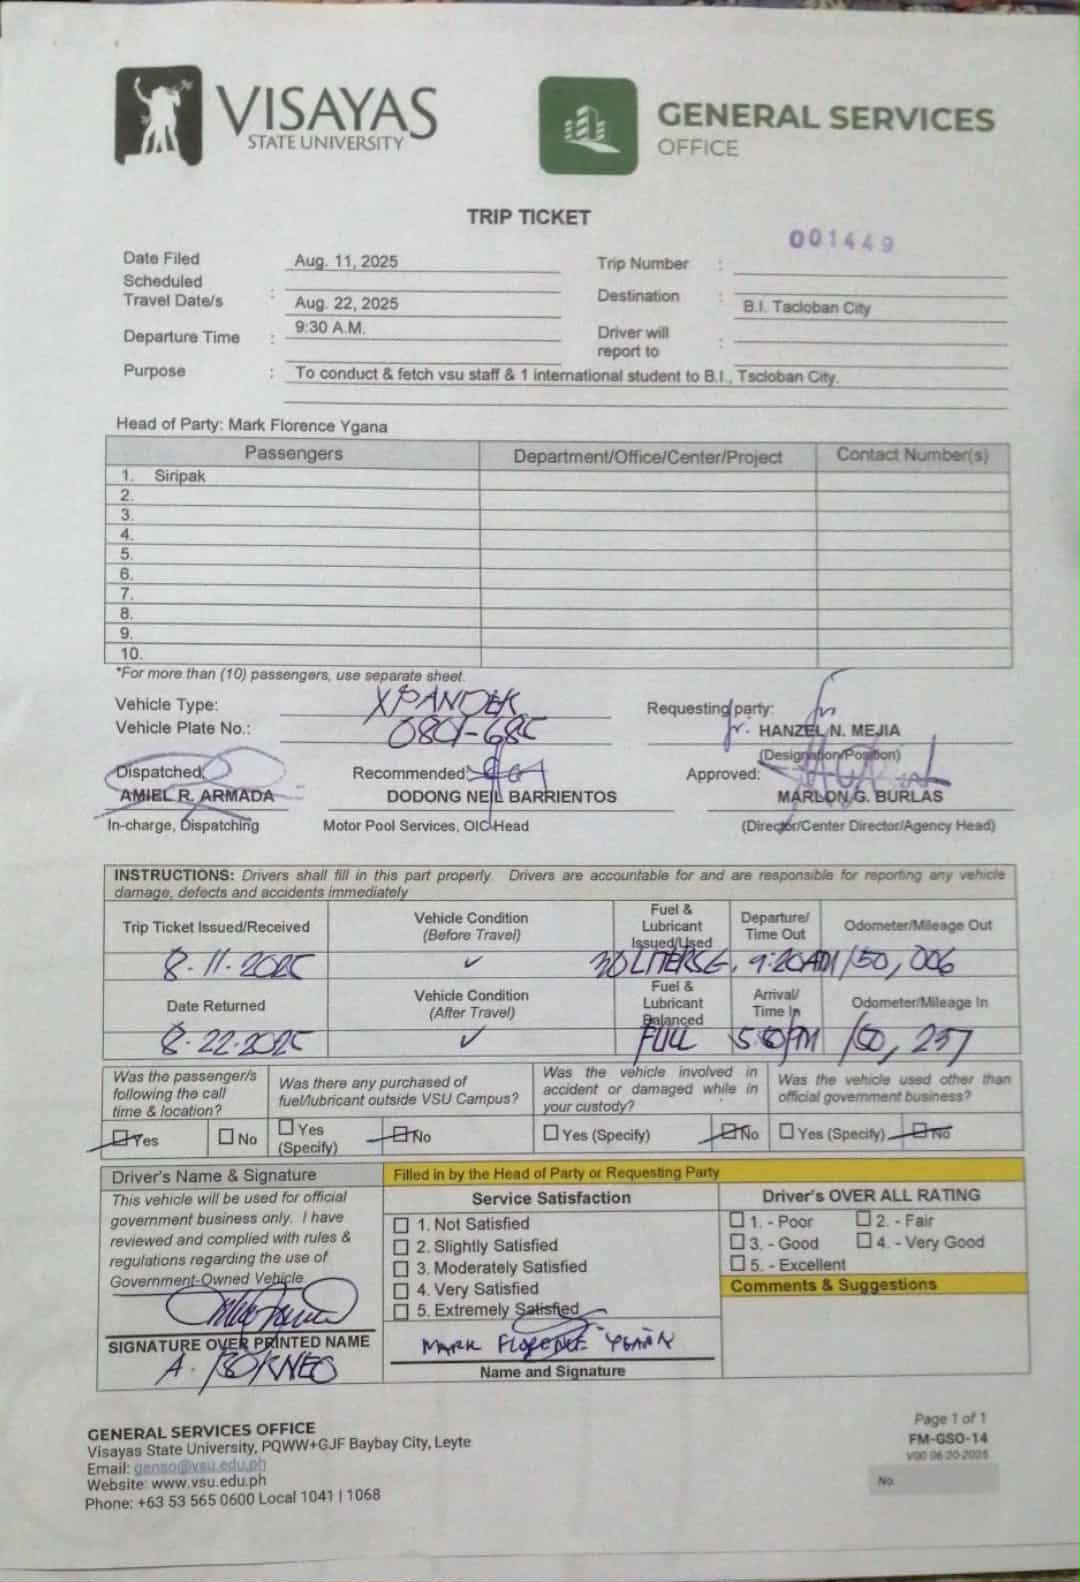 VISAYAS
STATE UNIVERSITY
GENERAL SERVICES
OFFICE
TRIP TICKET
001449
Date Filed Aug. 11, 2025 Trip Number :
Scheduled
Travel Date/s : Aug. 22, 2025 Destination : B.I. Tacloban City
Departure Time : 9:30 A.M. Driver will
report to :
Purpose : To conduct & fetch vsu staff & 1 international student to B.I., Tscloban City.
Head of Party: Mark Florence Ygana
Passengers Department/Office/Center/Project Contact Number(s)
1. Siripak
2.
3.
4.
5.
6.
7.
8.
9.
10.
*For more than (10) passengers, use separate sheet.
Vehicle Type: XPANDER Requesting party:
Vehicle Plate No.: HANZEL N. MEJIA
(Designation/Position)
Dispatched: Recommended: Approved:
AMIEL R. ARMADA DODONG NEIL BARRIENTOS MARLON G. BURLAS
In-charge, Dispatching Motor Pool Services, OIC-Head (Director/Center Director/Agency Head)
INSTRUCTIONS: Drivers shall fill in this part properly. Drivers are accountable for and are responsible for reporting any vehicle
damage, defects and accidents immediately
Trip Ticket Issued/Received Vehicle Condition (Before Travel) Fuel & Lubricant Issued/Used Departure/ Time Out Odometer/Mileage Out
8-11-2025 ✓ 30 LITERSG. 9:20AM /50,006
Date Returned Vehicle Condition (After Travel) Fuel & Lubricant Balanced Arrival/ Time In Odometer/Mileage In
8-22-2025 ✓ FULL PM /50,237
Was the passenger/s following the call time & location? Was there any purchased of fuel/lubricant outside VSU Campus? Was the vehicle involved in accident or damaged while in your custody? Was the vehicle used other than official government business?
Yes No Yes (Specify) No Yes (Specify) No Yes (Specify) No
Driver's Name & Signature Filled in by the Head of Party or Requesting Party
This vehicle will be used for official
government business only. I have
reviewed and complied with rules &
regulations regarding the use of
Government-Owned Vehicle
SIGNATURE OVER PRINTED NAME
A. BORNEO
Service Satisfaction
1. Not Satisfied
2. Slightly Satisfied
3. Moderately Satisfied
4. Very Satisfied
5. Extremely Satisfied
MARK FLORENCE YGAÑA
Name and Signature
Driver's OVER ALL RATING
1. - Poor 2. - Fair
3. - Good 4. - Very Good
5. - Excellent
Comments & Suggestions
GENERAL SERVICES OFFICE
Visayas State University, PQWW+GJF Baybay City, Leyte
Email: genso@vsu.edu.ph
Website: www.vsu.edu.ph
Phone: +63 53 565 0600 Local 1041 | 1068
Page 1 of 1
FM-GSO-14
V00 06-20-2025
No.